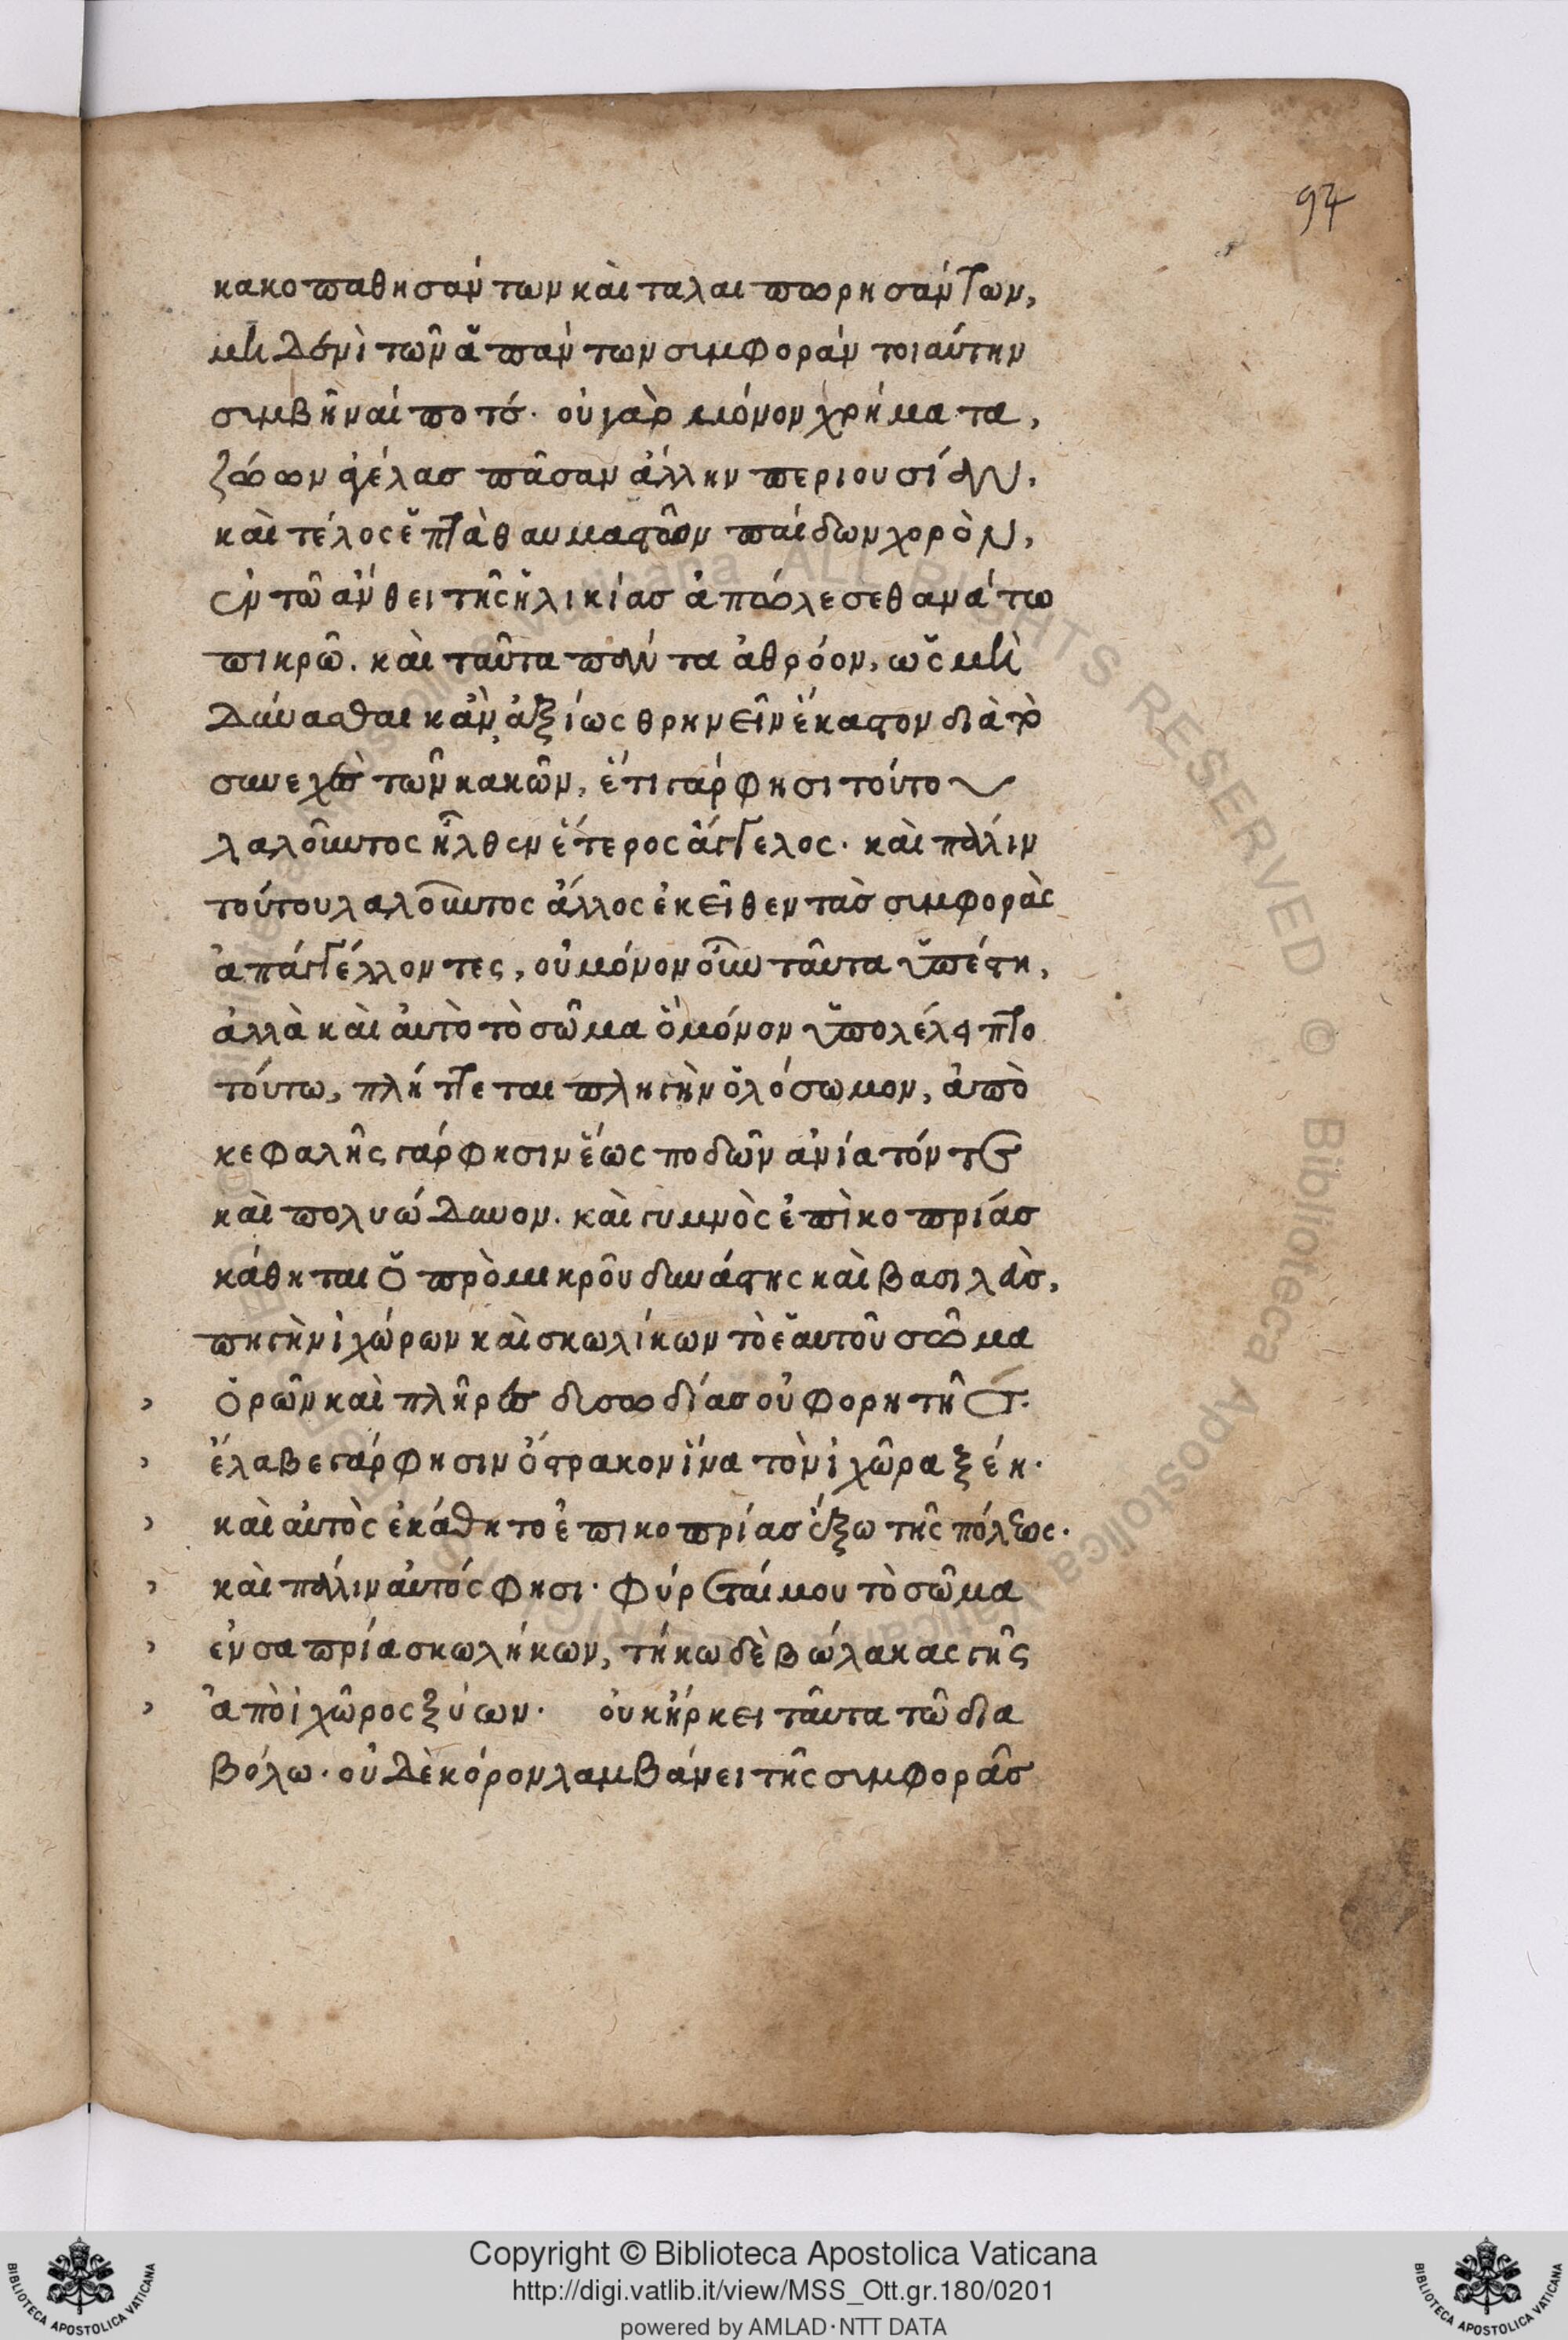 97
κακοπαθησάντων καὶ ταλαιπωρησάντων,
μηδενὶ τῶν ἁπάντων συμφορὰν τοιαύτην
συμβῆναί ποτέ. οὐ γὰρ μόνον χρήματα,
ζώων ἀγέλας πᾶσαν ἄλλην περιουσίαν,
καὶ τέλος ἑπτὰ θαυμαστῶν παίδων χορὸν,
ἐν τῶ ἄνθει τῆς ἡλικίας ἀπώλεσε θανάτω
πικρῶ. καὶ ταῦτα πάντα ἀθρόον, ὡς μὴ
δύνασθαι κἂν ἀξίως θρηνεῖν ἕκαστον διὰ τὸ
συνεχὲς τῶν κακῶν, ἔτι γάρ φησι τούτου
λαλοῦντος ἦλθεν ἕτερος ἄγγελος. καὶ πάλιν
τούτου λαλοῦντος ἄλλος ἐκεῖθεν τὰς συμφορὰς
ἀπαγγέλλοντες, οὐ μόνον οὖν ταῦτα ὑπέστη,
ἀλλὰ καὶ αὐτὸ τὸ σῶμα ὃ μόνον ὑπολέλειπτο
τούτω, πλήττεται πληγὴν ὁλόσωμον, ἀπὸ
κεφαλῆς γάρ φησιν ἕως ποδῶν ἀνίατόν τε
καὶ πολυώδυνον. καὶ γυμνὸς ἐπὶ κοπρίας
κάθηται ὁ πρὸ μικροῦ δυνάστης καὶ βασιλεὺς,
πηγὴν ἰχώρων καὶ σκωλίκων τὸ ἑαυτοῦ σῶμα
ὁρῶν καὶ πλῆρες δυσωδίας οὐ φορητῆς.
ἔλαβε γάρ φησιν ὄστρακον ἵνα τὸν ἰχῶρα ξέη.
καὶ αὐτὸς ἐκάθητο ἐπι κοπρίας ἔξω τῆς πόλεως.
καὶ πάλιν αὐτός φησι. φύρεταί μου τὸ σῶμα
ἐν σαπρία σκωλήκων, τήκω δὲ βώλακας γῆς
ἀπὸ ἰχῶρος ξύων. οὐκ ἤρκει ταῦτα τῶ δια
βόλω. οὐδὲ κόρον λαμβάνει τῆς συμφορᾶς
Copyright © Biblioteca Apostolica Vaticana
http://digi.vatlib.it/view/MSS_Ott.gr.180/0201
powered by AMLAD·NTT DATA